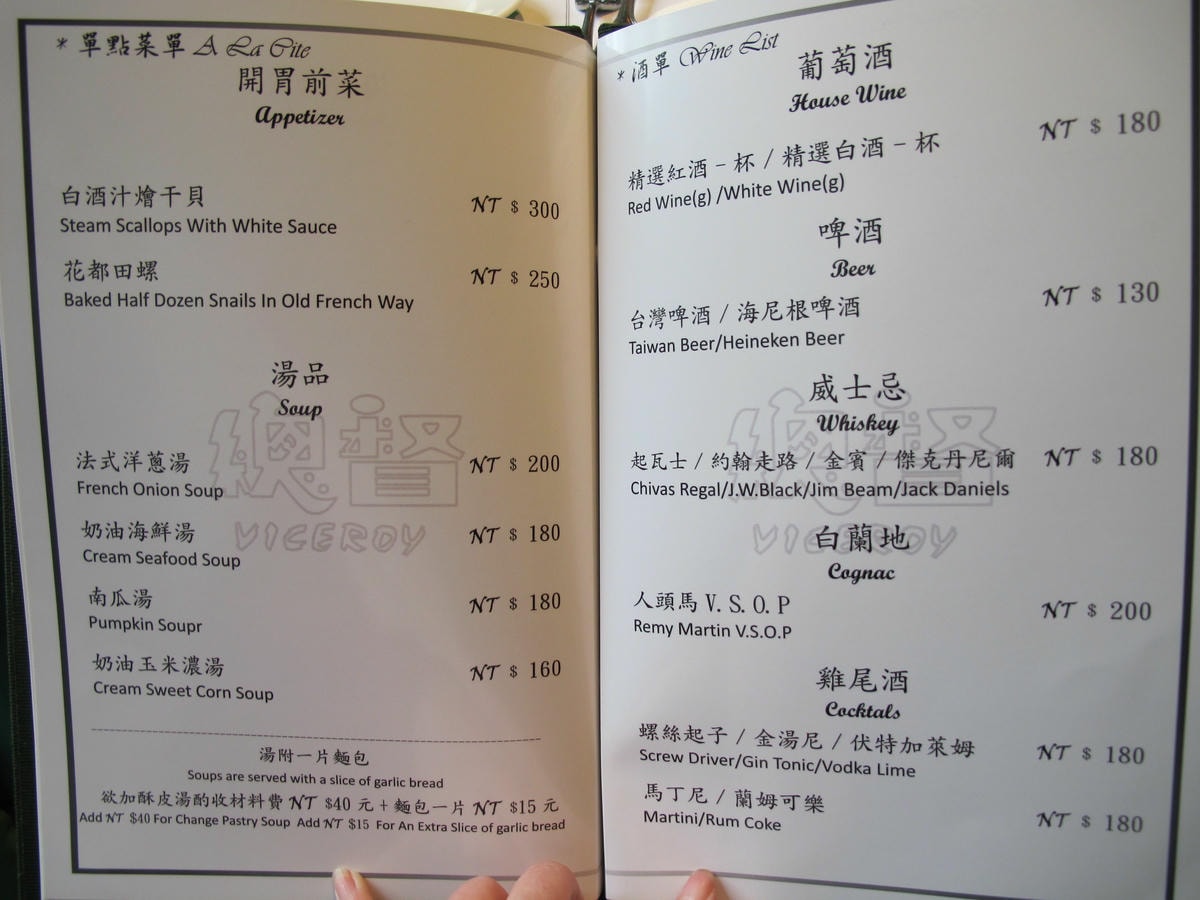 * 單點菜單 A La Cite
開胃前菜
Appetizer
白酒汁燴干貝 NT $ 300
Steam Scallops With White Sauce
花都田螺 NT $ 250
Baked Half Dozen Snails In Old French Way
湯品
Soup
法式洋蔥湯 NT $ 200
French Onion Soup
奶油海鮮湯 NT $ 180
Cream Seafood Soup
南瓜湯 NT $ 180
Pumpkin Soupr
奶油玉米濃湯 NT $ 160
Cream Sweet Corn Soup
湯附一片麵包
Soups are served with a slice of garlic bread
欲加酥皮湯酌收材料費 NT $40 元 + 麵包一片 NT $15 元
Add NT $40 For Change Pastry Soup Add NT $15 For An Extra Slice of garlic bread
總督
VICEROY
* 酒單 Wine List
葡萄酒
House Wine
NT $ 180
精選紅酒 - 杯 / 精選白酒 - 杯
Red Wine(g) /White Wine(g)
啤酒
Beer
NT $ 130
台灣啤酒 / 海尼根啤酒
Taiwan Beer/Heineken Beer
威士忌
Whiskey
起瓦士 / 約翰走路 / 金賓 / 傑克丹尼爾 NT $ 180
Chivas Regal/J.W.Black/Jim Beam/Jack Daniels
白蘭地
Cognac
人頭馬 V.S.O.P NT $ 200
Remy Martin V.S.O.P
雞尾酒
Cocktals
螺絲起子 / 金湯尼 / 伏特加萊姆 NT $ 180
Screw Driver/Gin Tonic/Vodka Lime
馬丁尼 / 蘭姆可樂 NT $ 180
Martini/Rum Coke
總督
VICEROY